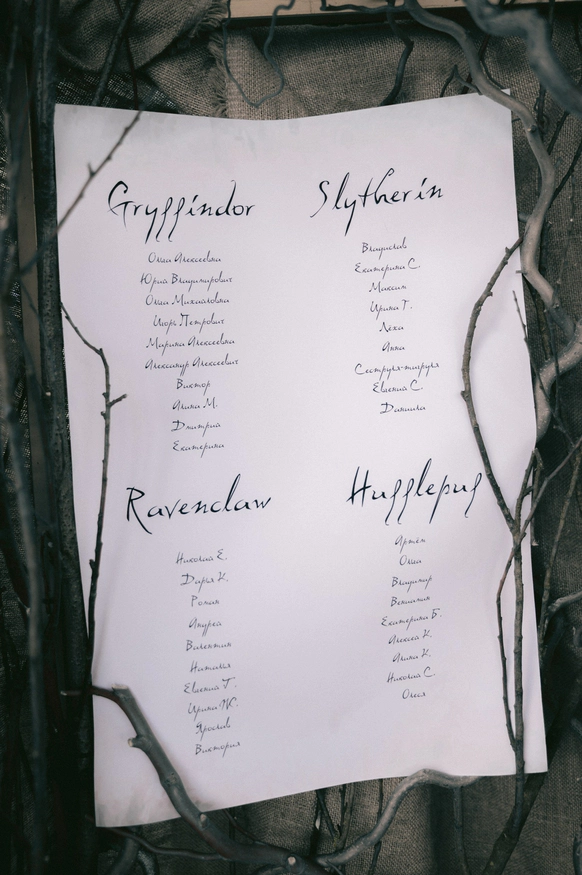 Gryffindor
Ольга Алексеевна
Юрий Владимирович
Ольга Михайловна
Игорь Петрович
Марина Алексеевна
Александр Алексеевич
Виктор
Алина М.
Дмитрий
Екатерина
Slytherin
Владислав
Екатерина С.
Максим
Ирина Т.
Лёха
Анна
Евгений С.
Даниила
Ravenclaw
Николай Е.
Дарья К.
Роман
Андрей
Валентин
Наталья
Евгений Т.
Ирина Ж.
Ярослав
Виктория
Hufflepuf
Артём
Ольга
Владимир
Вениамин
Екатерина Б.
Алексей К.
Алина К.
Николай С.
Олеся